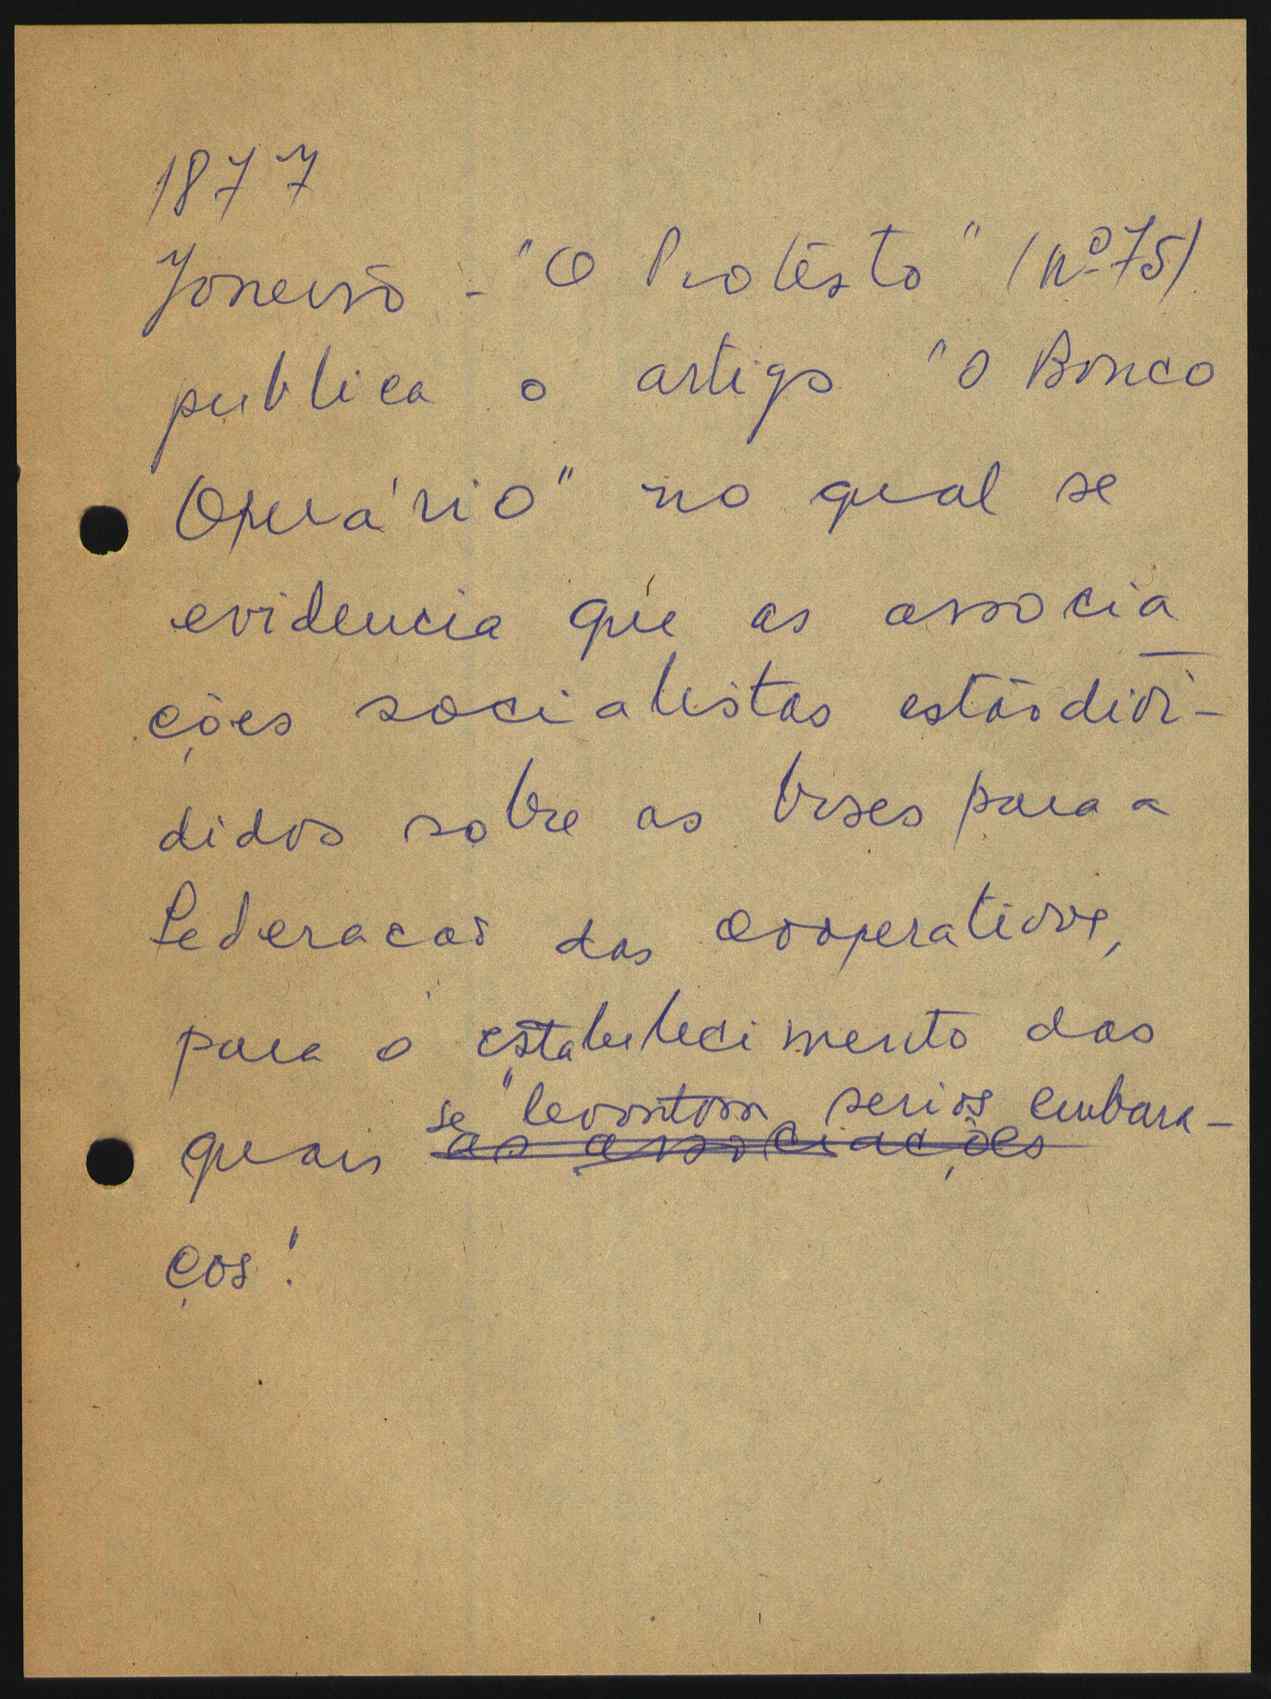 1877
Janeiro - "O Protesto" (nº 75)
publica o artigo "O Banco
Operário" no qual se
evidencia que as associa
ções socialistas estão divi-
didos sobre as bases para a
Federacao das cooperativas,
para o estabelecimento das
quais se "levantam serios embara-
as associações
ços".